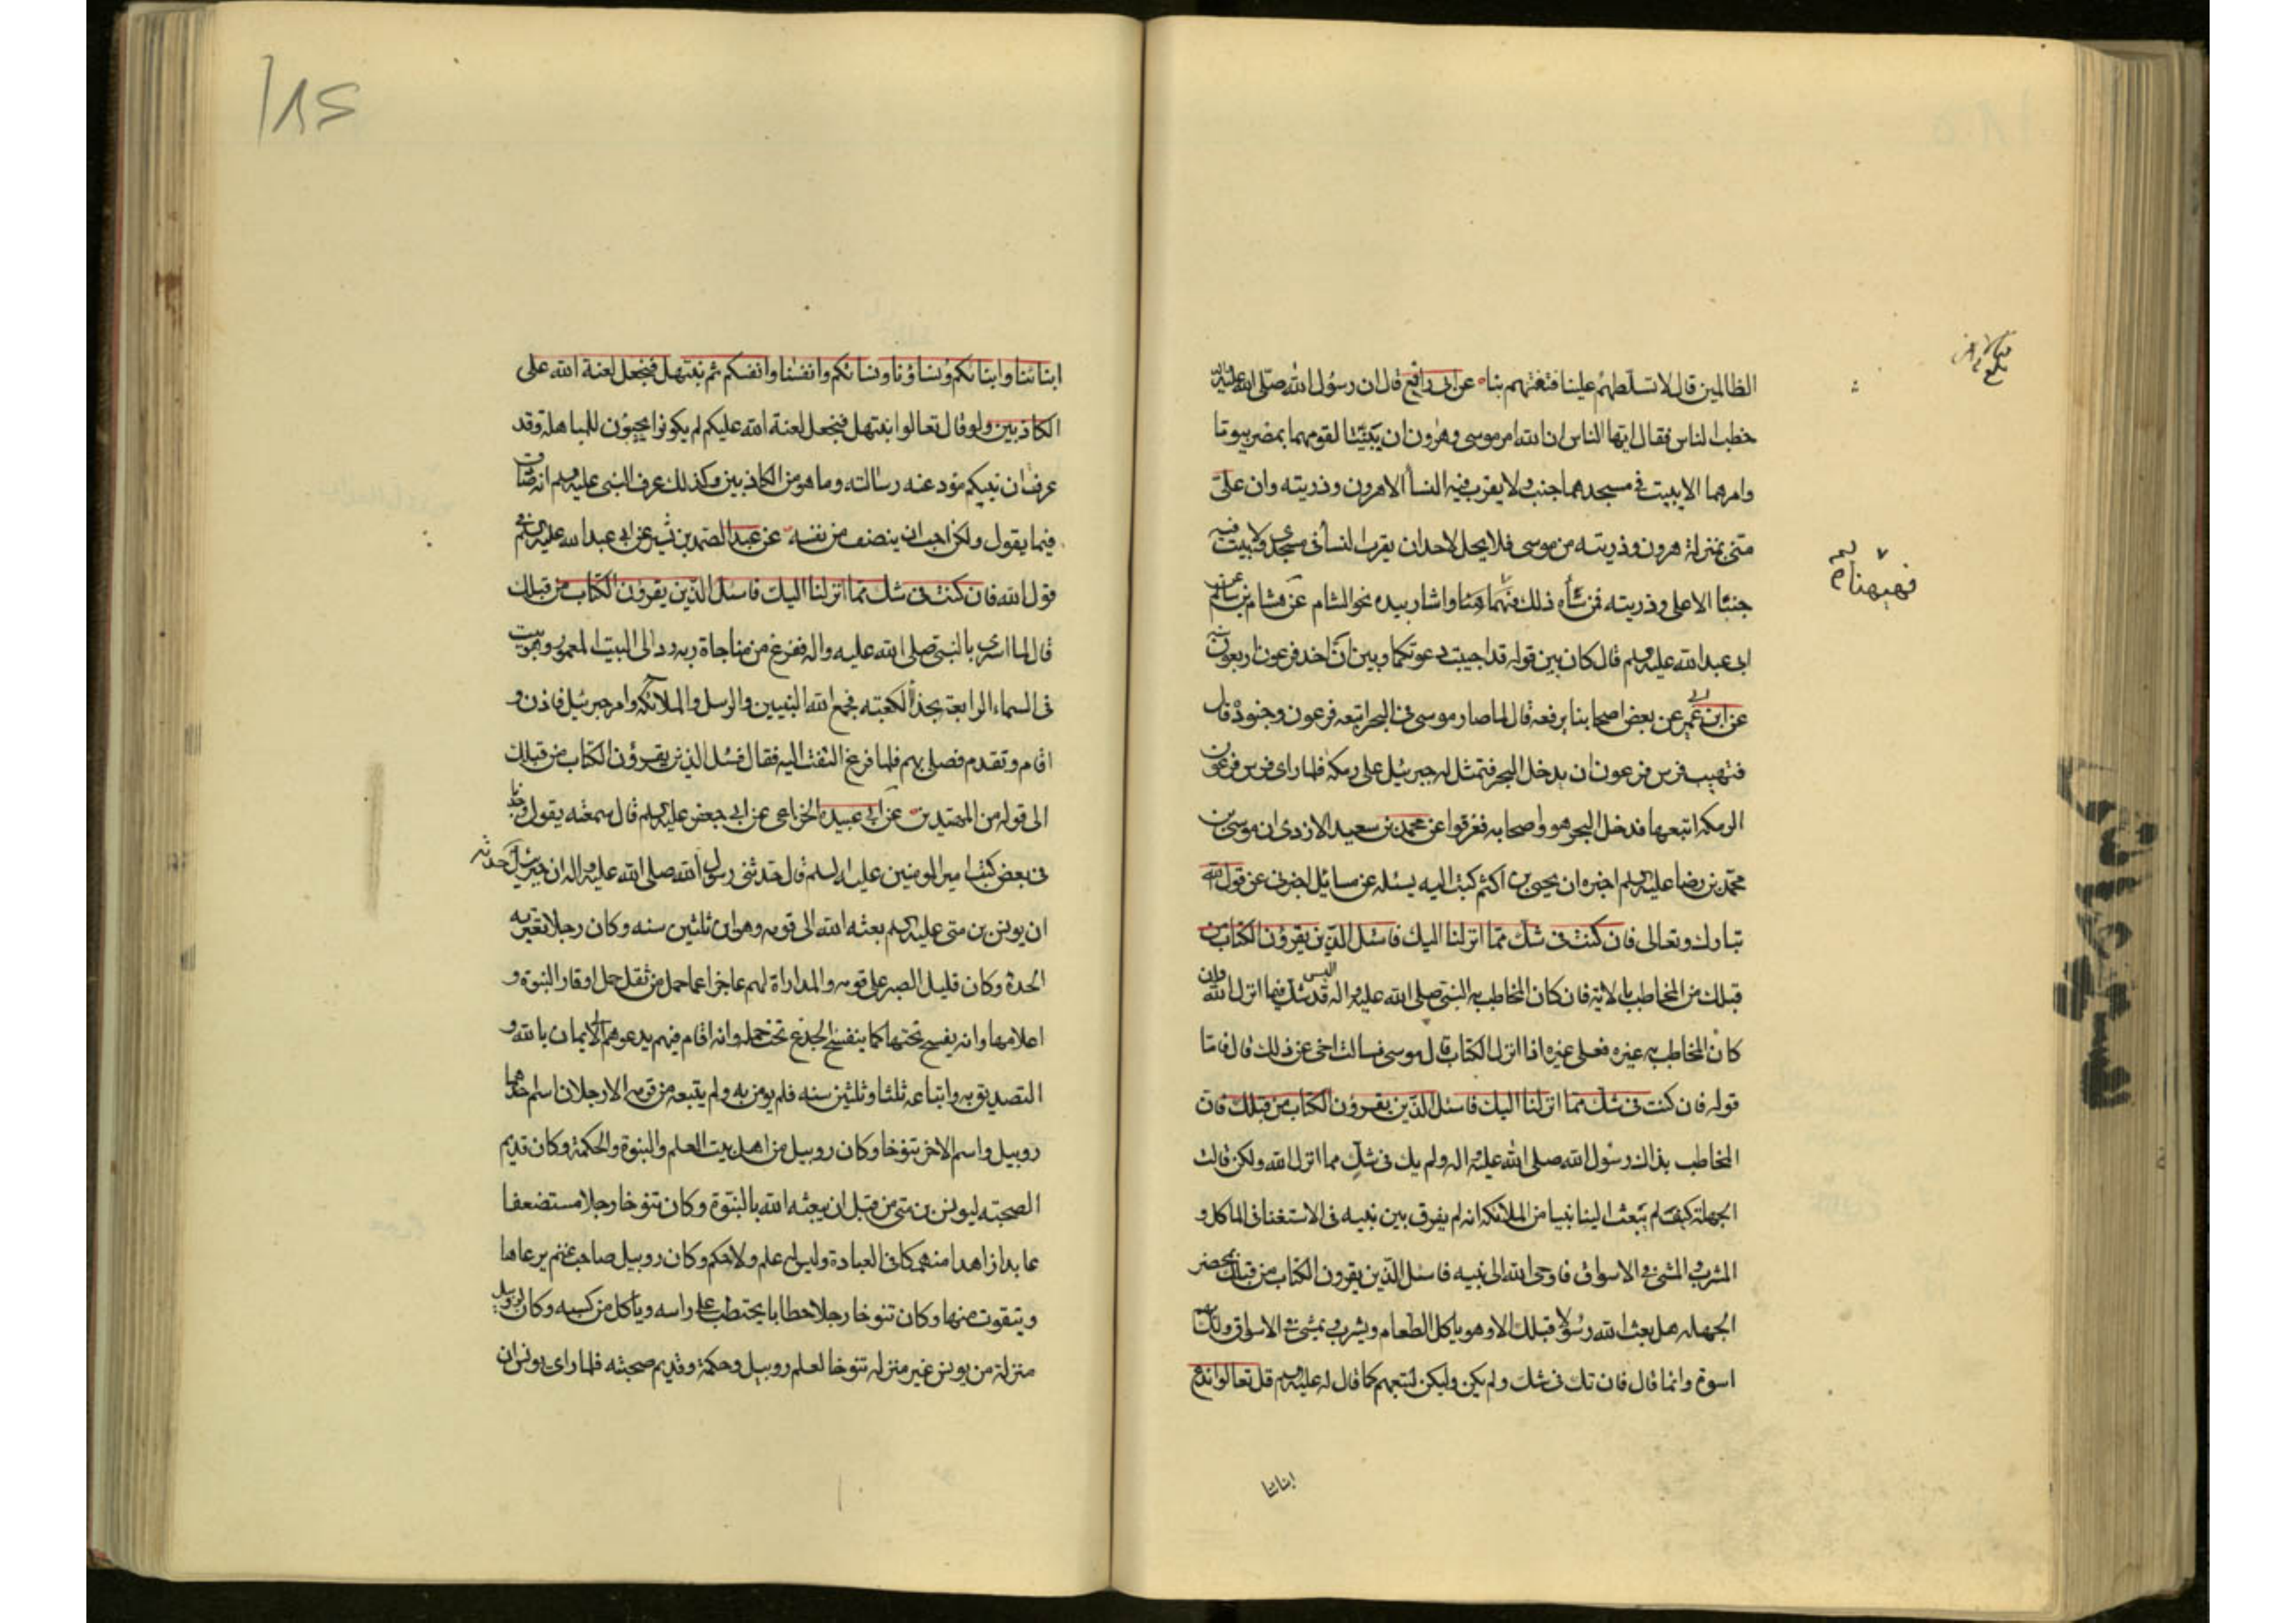 الظالمين قال لا تسلطهم علينا فتفتنهم بنا عن ابى رافع قال ان رسول الله صلى الله عليه
خطب الناس فقال ايها الناس ان الله امر موسى وهرون ان يبنيا لقومهما بمصر بيوتا
وامرهما الا يبيت فى مسجدهما جنب ولا يقرب فيه النسأ الا هرون وذريته وان على
منى بمنزلة هرون وذريته من موسى فلا يحل لاحد ان يقرب النسأ فى مسجدى ولا يبيت فيه
جنبا الا على وذريته فمن شأه ذلك فهيهنا واشار بيده نحو الشام عن هشام بن سالم عن
ابى عبد الله عليه السلم قال كان بين قوله قد اجيبت دعوتكما وبين ان اخذ فرعون اربعون سنه
عن ابن ابى عمير عن بعض اصحابنا يرفعه قال لما صار موسى فى البحر اتبعه فرعون وجنوده قال
فتهيب فرس فرعون ان يدخل البحر فتمثل له جبرئيل على رمكة فلما راى فرس فرعون
الرمكه اتبعها فدخل البحر هو واصحابه فغرقوا عن محمد بن سعيد الازدى ان موسى بن
محمد بن رضا عليه السلم اخبره ان يحيى بن اكثم كتب اليه يسئله عن مسائل اخبرنى عن قول الله
تبارك وتعالى فان كنت فى شك مما انزلنا اليك فاسئل الذين يقرؤن الكتاب من
قبلك من المخاطب بالاية فان كان المخاطب به النبى صلى الله عليه واله اليس قد شك فيما انزل الله وان
كان المخاطب به غيره فعلى غيره اذا انزل الكتاب قال موسى فسالت اخى عن ذلك قال فاما
قوله فان كنت فى شك مما انزلنا اليك فاسئل الذين يقرؤن الكتاب من قبلك فان
المخاطب بذلك رسول الله صلى الله عليه واله ولم يك فى شك مما انزل الله ولكن قالت
الجهلة كيف لم يبعث الينا نبيا من الملائكة انه لم يفرق بين نبيه فى الاستغنا فى الماكل و
المشرب والمشى فى الاسواق فاوحى الله الى نبيه فاسئل الذين يقرون الكتاب من قبلك بمحضر
الجهله هل بعث الله رسولا قبلك الا وهو ياكل الطعام ويشرب ويمشى فى الاسواق ولك بهم
اسوة وانما قال فان تك فى شك ولم يكن وليكن لتتبعهم كما قال له عليه السلم قل تعالوا ندع
ابنائنا
فهيهنا
ابنائنا وابنائكم ونساؤنا ونسائكم وانفسنا وانفسكم ثم نبتهل فنجعل لعنة الله على
الكاذبين ولو قال تعالوا نبتهل فنجعل لعنة الله عليكم لم يكونوا يجيبون للمباهلة وقد
عرف ان نبيكم مؤد عنه رسالته وما هو من الكاذبين وكذلك عرف النبى عليه السلم انه صادق
فيما يقول ولكن احب ان ينصف من نفسه عن عبد الصمد بن بشير عن ابى عبد الله عليه السلم فى
قول الله فان كنت فى شك مما انزلنا اليك فاسئل الذين يقرؤن الكتاب من قبلك
قال لما اسرى بالنبى صلى الله عليه واله ففرغ من مناجاة ربه رد الى البيت المعمور وهو بيت
فى السماء الرابعة بحذأ الكعبته فجمع الله النبيين والرسل والملائكة وامر جبرئيل فاذن و
اقام وتقدم فصلى بهم فلما فرغ التفت اليه فقال فسئل الذين يقرؤن الكتاب من قبلك
الى قوله من المهتدين عن ابى عبيده الخزاعى عن ابى جعفر عليه السلم قال سمعته يقول وجدنا
فى بعض كتب امير المومنين عليه السلم قال حدثنى رسول الله صلى الله عليه واله ان جبرئيل حدثه
ان يونس بن متى عليه السلم بعثه الله الى قومه وهو ابن ثلثين سنه وكان رجلا تعتريه
الحدة وكان قليل الصبر على قومه والمداراة لهم عاجزا عما حمل من ثقل حمل اوقار النبوة و
اعلامها وانه يفسخ تحتها كما ينفسخ الجذع تحت حمله وانه اقام فيهم يدعوهم الى الايمان بالله و
التصديق به واتباعه ثلثا وثلثين سنه فلم يومن به ولم يتبعه من قومه الا رجلان اسم احدهما
روبيل واسم الاخر تنوخا وكان روبيل من اهل بيت العلم والنبوة والحكمة وكان قديم
الصحبته ليونس بن متى من قبل ان يبعثه الله بالنبوة وكان تنوخا رجلا مستضعفا
عابدا زاهدا منهمكا فى العبادة وليس له علم ولا حكم وكان روبيل صاحب غنم يرعاها
ويتقوت منها وكان تنوخا رجلا حطابا يحتطب على راسه وياكل من كسبه وكان لروبيل
منزلة من يونس غير منزله تنوخا لعلم روبيل وحكمة وقديم صحبته فلما راى يونس ان